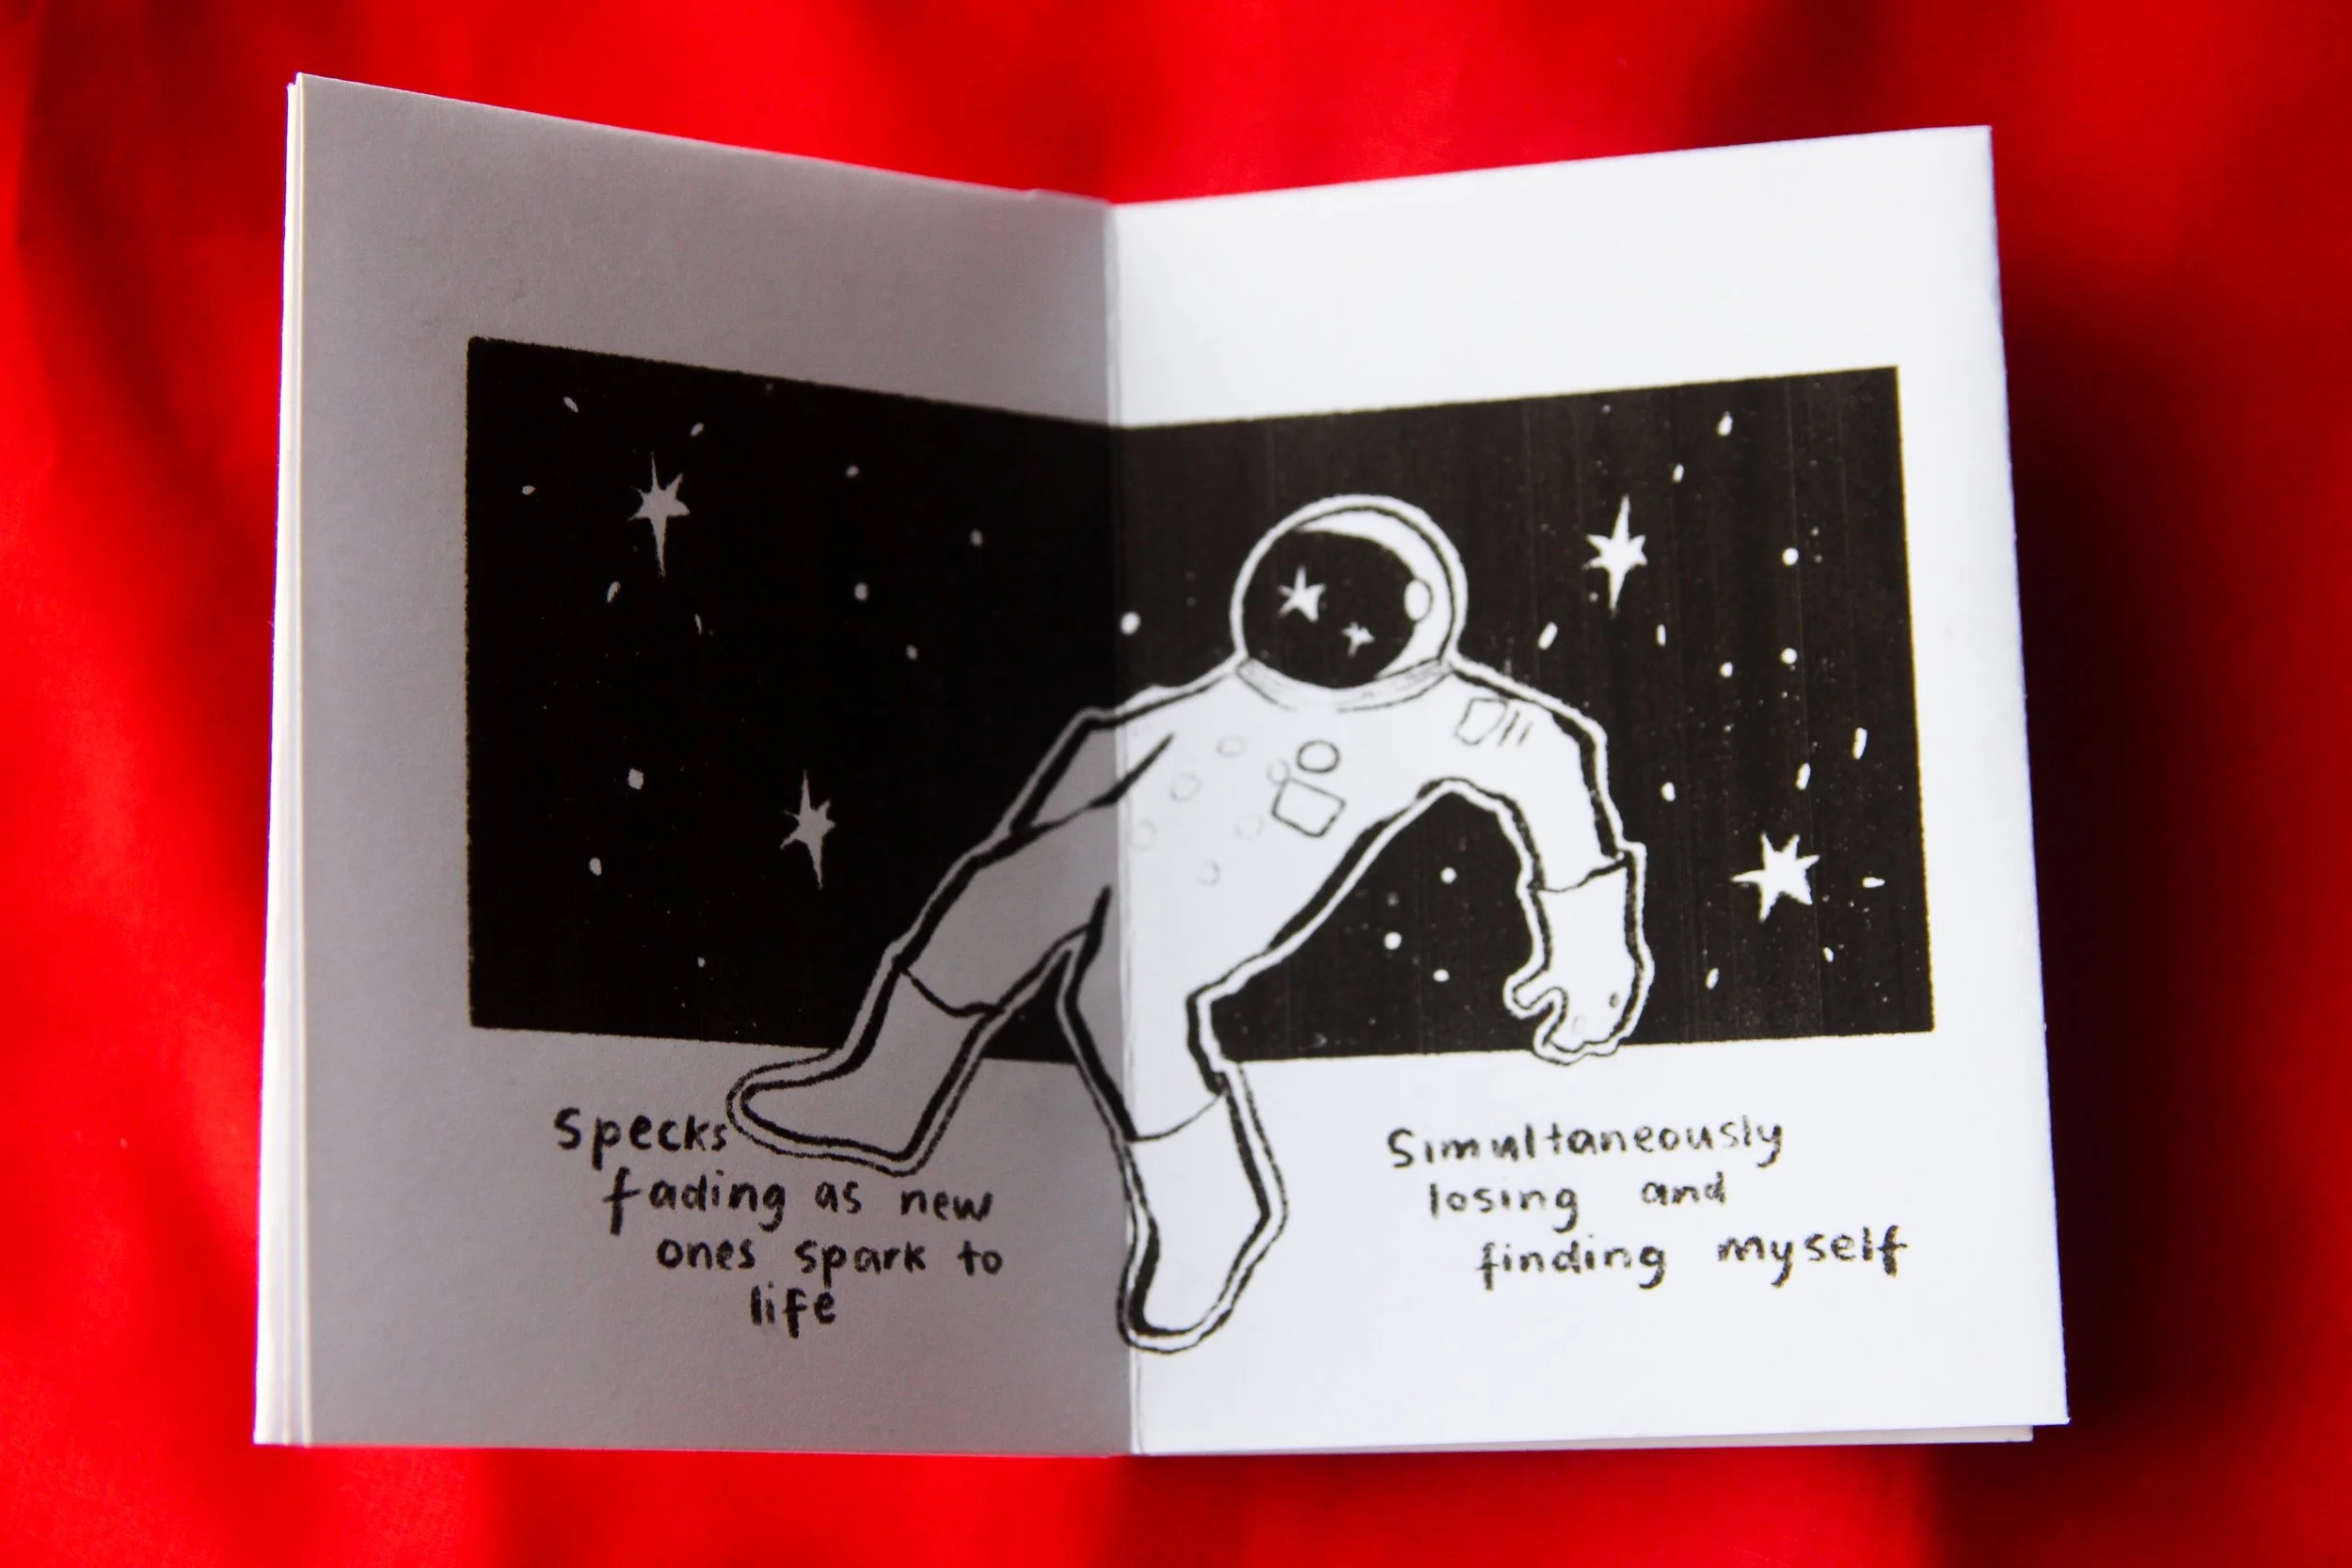 Specks
fading as new
ones spark to
life
Simultaneously
losing and
finding myself